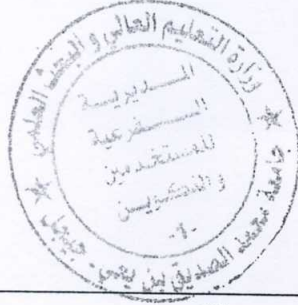 وزارة التعليم العالي و البحث العلمي
المديرية
الفرعية
للمستخدمين
و التكوين
-1-
جامعة محمد الصديق بن يحيى - جيجل